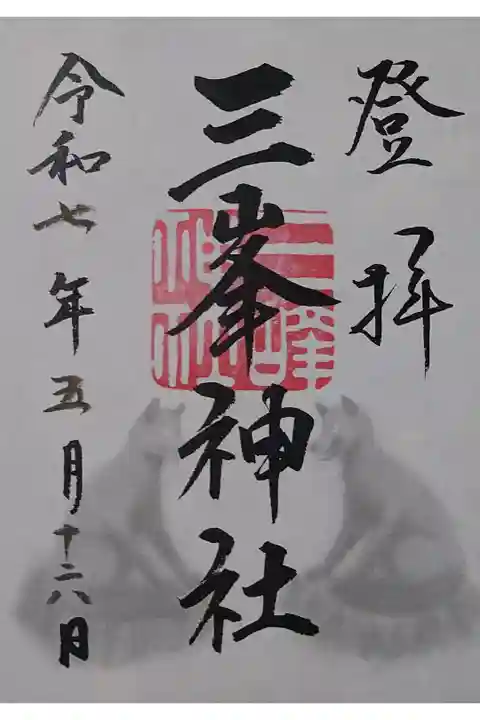 登拝
三峯神社
令和七年五月十六日
三峰神社